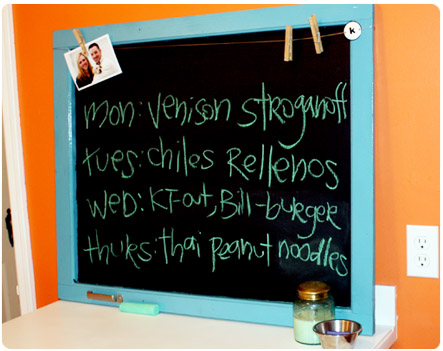 k
mon: venison stroganoff
tues: chiles Rellenos
WED: KT-out, Bill-burger
thurs: thai peanut noodles